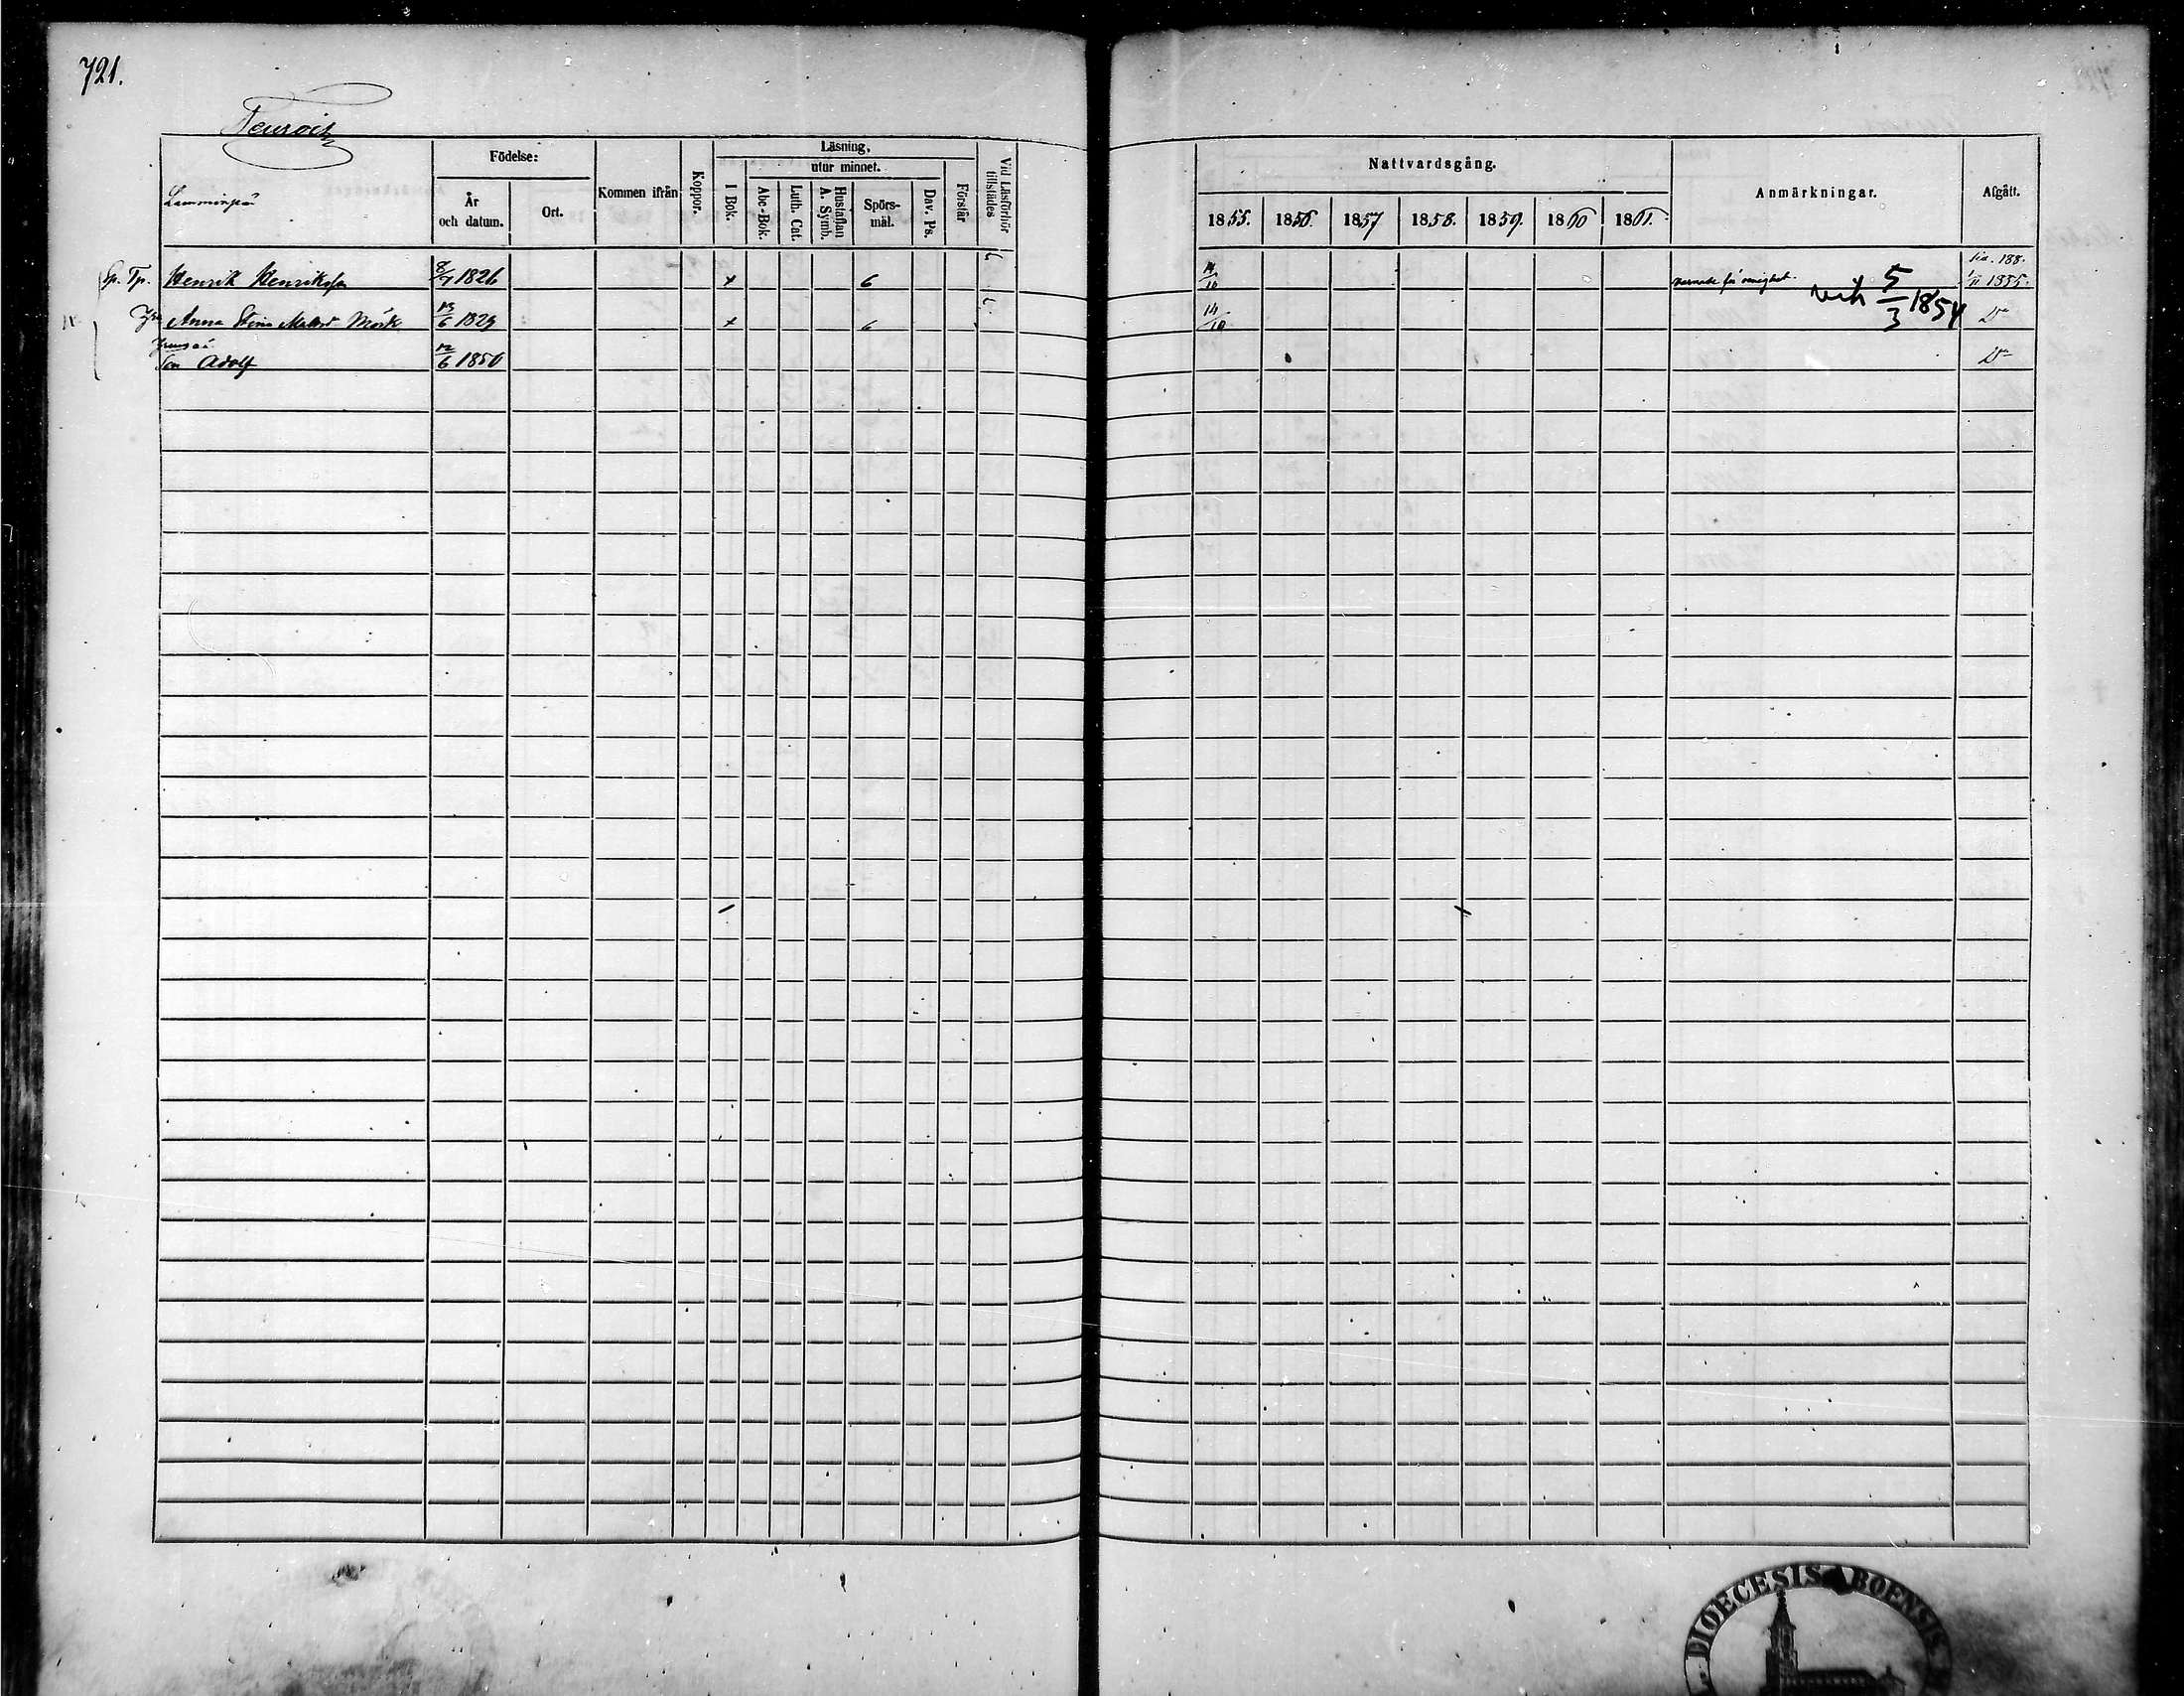 721.
Läsning,
Födelse:
utur minnet.
Nattvardsgång.
År
och datum.
Ort.
Kommen ifrån
Koppor.
I Bok.
Abc-Bok.
Luth. Cat.
Hustaflan
A. Symb.
Spörs-
mål.
Dav. Ps.
Förstår
Vid Läsförhör
tillstädes
1855. 1856. 1857 1858. 1859. 1860 1861.
Anmärkningar.
Afgått.
Sp. Tp. Henrik Henriksson 8/7 1826 x 6 14/10 188. 1855.
Anna Stina Mörk 13/6 1823 x 6 14/10 5/3 1854 Do
Son Adolf 12/6 1850 Do
DIOECESIS ABOENSIS